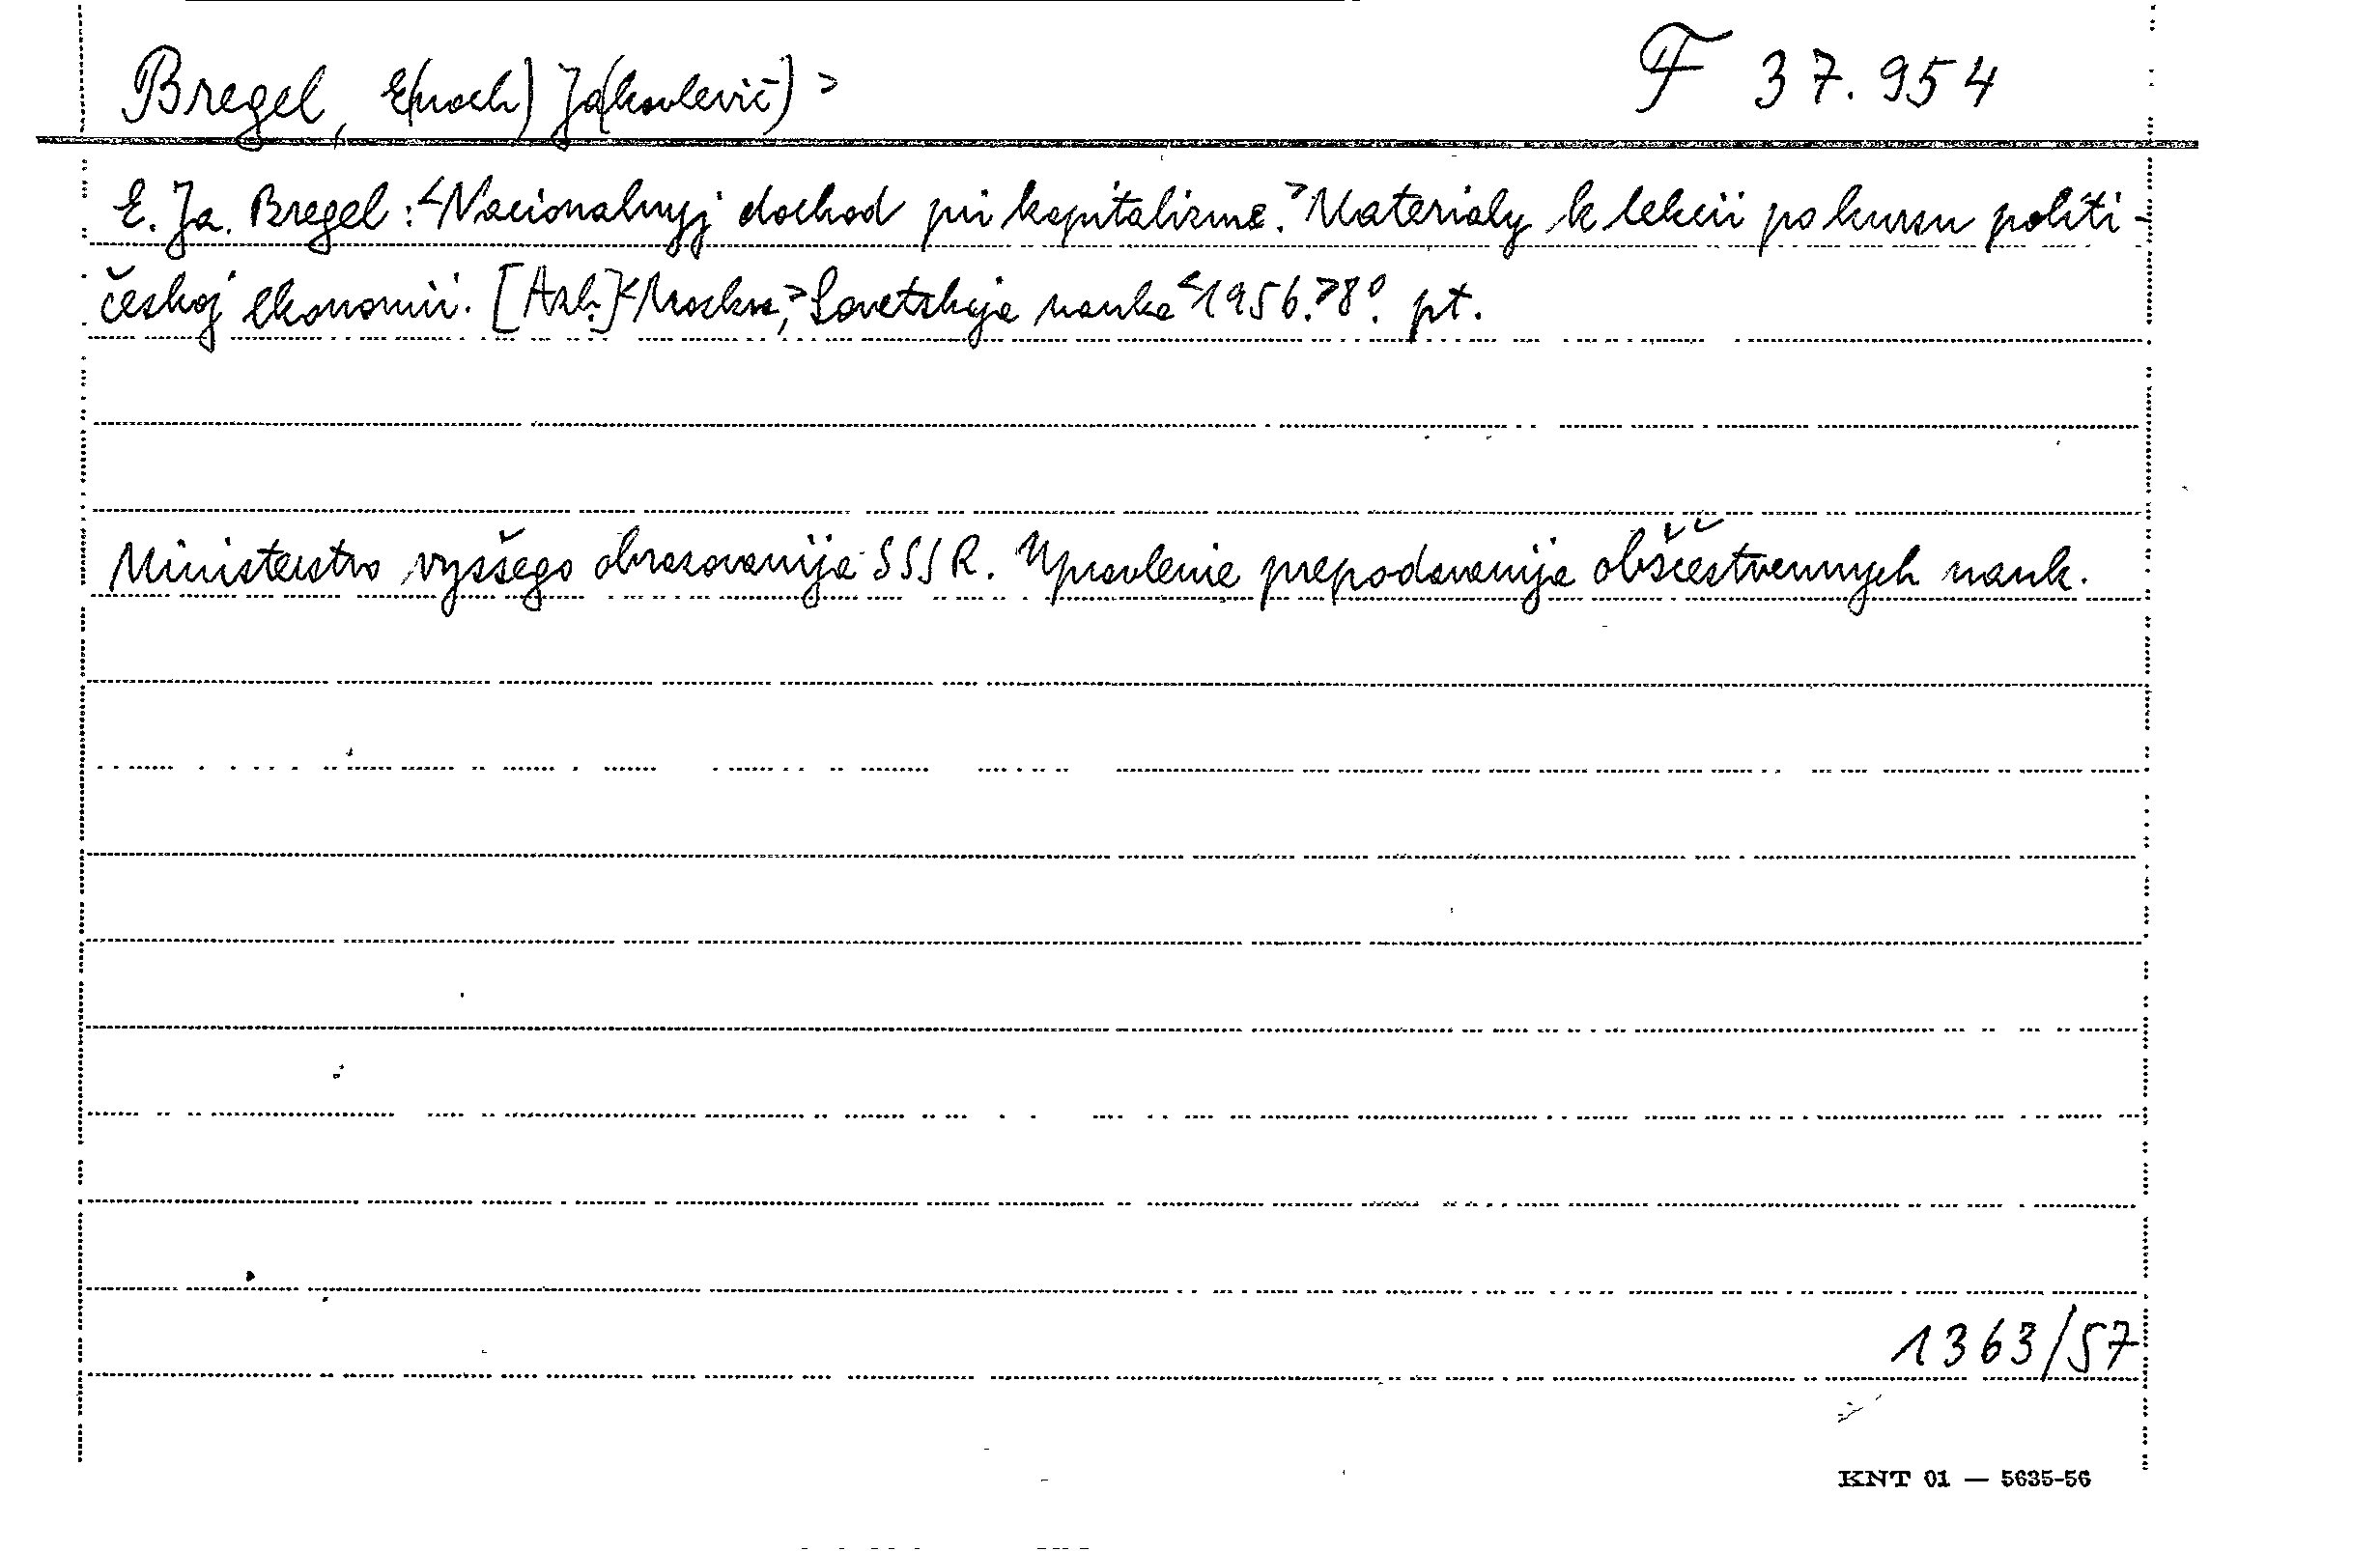 Bregel, E(noch) Ja(kovlevič) > F 37.954
E. Ja. Bregel : <Nacionalnyj dochod pri kapitalizme.> Materialy k lekcii po kursu politi-
českoj ekonomii. [Azb.] <Moskva,> Sovetskaja nauka <1956.> 8°. pt.
Ministerstvo vysšego obrazovanija SSSR. Upravlenie prepodavanija obščestvennych nauk.
1363/57
KNT 01 — 5635-56